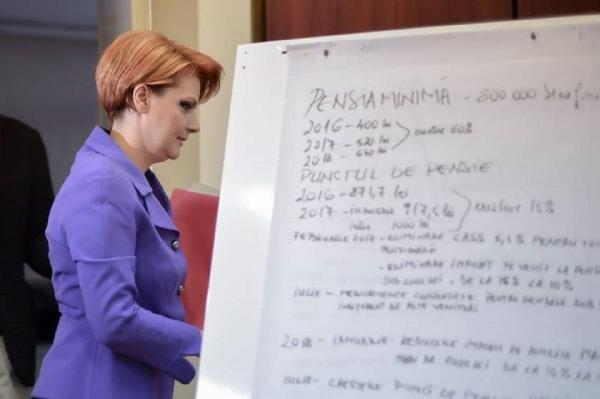 PENSIA MINIMĂ - 800 000 benefi
2016 - 400 lei
2017 - 520 lei
2018 - 640 lei
creștere 60%
PUNCTUL DE PENSIE
2016 - 871,7 lei
2017 - ianuarie 917,5 lei
iulie 1000 lei
creștere 15%
FEBRUARIE 2017 - ELIMINARE CASS 5,5% PENTRU
PENSIONARI
- ELIMINARE IMPOZIT PE VENIT LA PENS
SUB 2000 LEI, DE LA 16% LA 10%
IULIE - MEDICAMENTE COMPENSATE PENTRU PENSIILE SUB
INDIFERENT DE ALTE VENITURI
2018 - IANUARIE - REDUCERE IMPOZIT PE PENSIILE MAI
MARI DE 2000 LEI DE LA 16% LA
IULIE - CREȘTERE PUNCT DE PENSIE